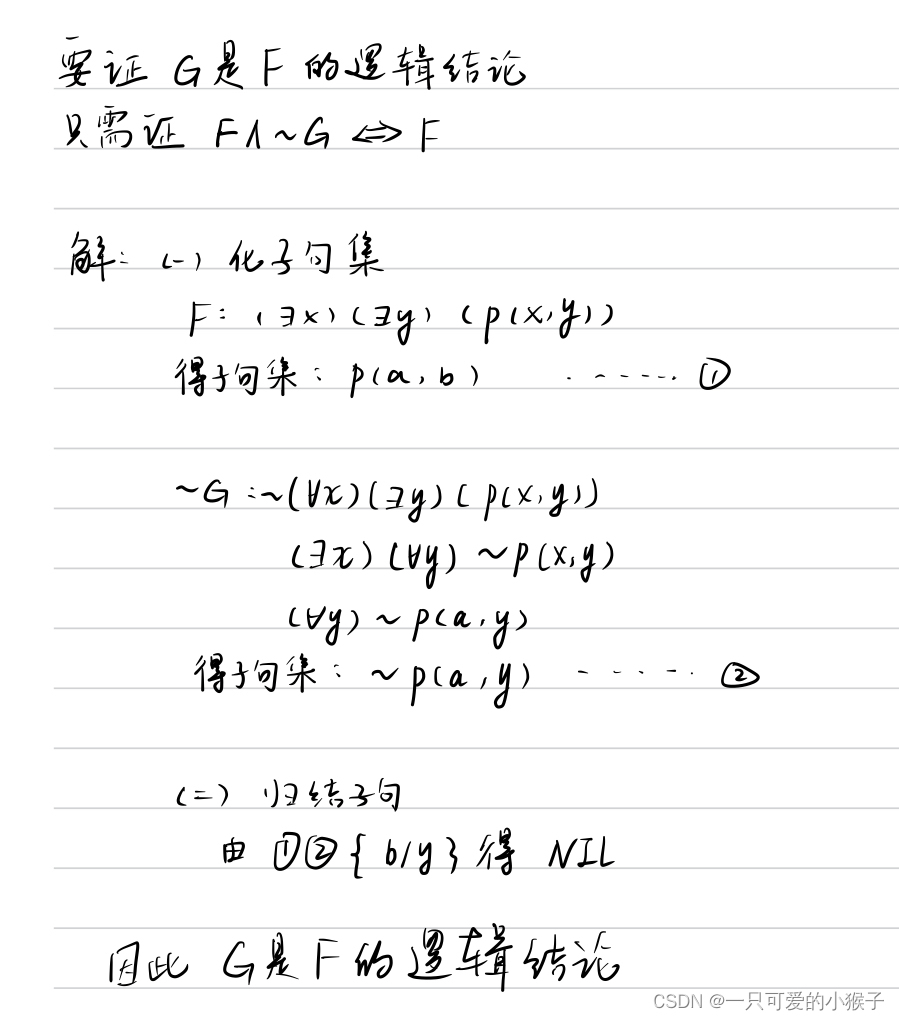 要证 G是F的逻辑结论
只需证 F∧~G ⇔ F
解: (一) 化子句集
F: (∃x)(∃y) (p(x,y))
得子句集: p(a,b) ······ ①
~G:~(∀x)(∃y)(p(x,y))
(∃x)(∀y) ~p(x,y)
(∀y) ~p(a,y)
得子句集: ~p(a,y) ······ ②
(二) 归结子句
由 ①② {b/y} 得 NIL
因此 G是F的逻辑结论
CSDN @一只可爱的小猴子